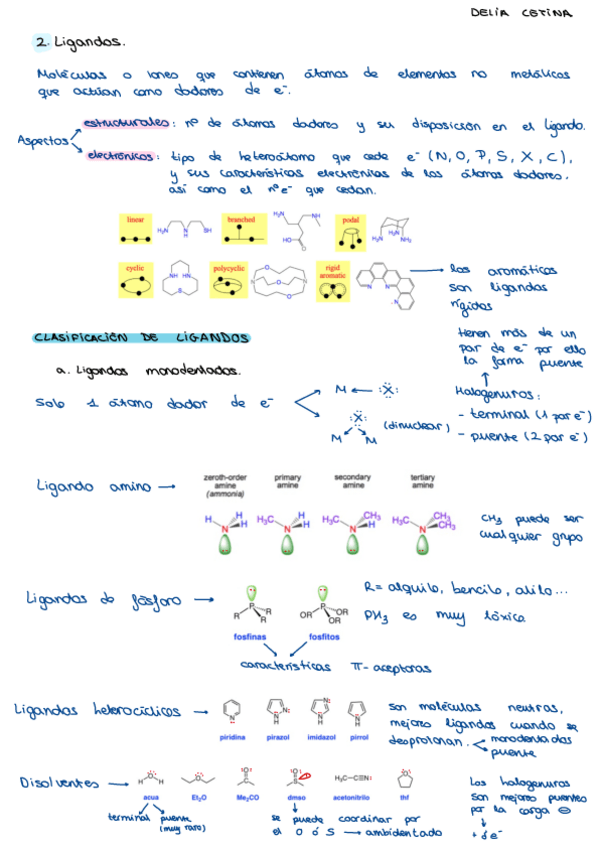 DELIA CETINA
2. Ligandos.
Moléculas o iones que contienen átomos de elementos no metálicos
que actúan como dadores de e⁻.
Aspectos
estructurales: nº de átomos dadores y su disposición en el ligando.
electrónicos: tipo de heteroátomo que cede e⁻ (N, O, P, S, X, C),
y sus características electrónicas de los átomos dadores.
así como el nº e⁻ que cedan.
linear
H₂N N H SH
branched
H₂N NH HO O
podal
NH₂ H₂N NH₂
cyclic
NH HN S
polycyclic
N O O O O N
rigid
aromatic
N N N N
los aromáticos
son ligandos
rígidos
CLASIFICACIÓN DE LIGANDOS
a. Ligandos monodentados.
Solo 1 átomo dador de e⁻
M ← :X:
:X:
M M
(dinuclear)
tienen más de un
par de e⁻ por ello
la forma puente
Halogenuros:
- terminal (1 par e⁻)
- puente (2 par e⁻)
Ligando amino →
zeroth-order
amine
(ammonia)
primary
amine
secondary
amine
tertiary
amine
H N H H
H₃C N H H
H₃C N CH₃ H
H₃C N CH₃ CH₃
CH₃ puede ser
cualquier grupo
Ligandos de fósforo →
R P R R
OR P OR OR
fosfinas
fosfitos
R = alquilo, bencilo, alilo...
PH₃ es muy tóxica
características π-aceptoras
Ligandos heterocíclicos →
N
N: N H
N: N H
N H
piridina
pirazol
imidazol
pirrol
son moléculas neutras,
mejores ligandos cuando se
desprotonan.
monodentadas
puente
Disolventes →
H O H
O
O
O S
H₃C-C≡N:
O
acua
Et₂O
Me₂CO
dmso
acetonitrilo
thf
terminal
puente
(muy raro)
se puede coordinar por
el O ó S → ambidentado
Los halogenuros
son mejores puentes
por la carga ⊖
+ d e⁻